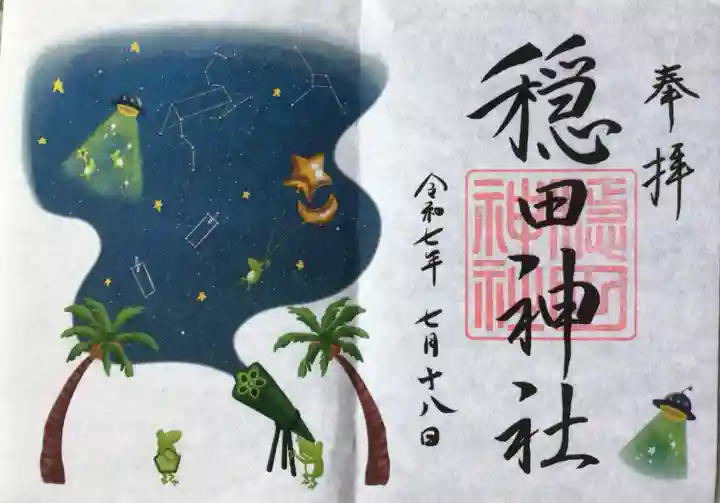 奉拝
穏田神社
令和七年 七月十八日
穏田
神社